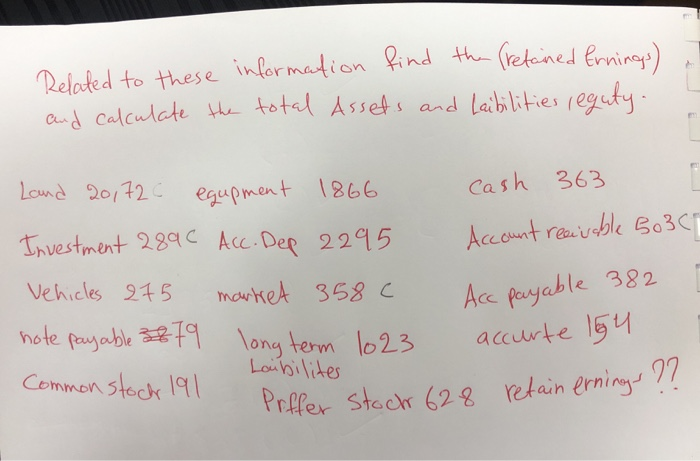 Related to these information find the (retained Ernings)
and calculate the total Assets and Laibilities, equty.
Land 20,72C equpment 1866 Cash 363
Investment 289C Acc.Dep 2295 Account reaivable 503C
Vehicles 275 market 358C Acc payable 382
note payable 79 long term Laibilites 1023 accurte 154
Common stock 191 Prffer Stock 628 retain ernings ??